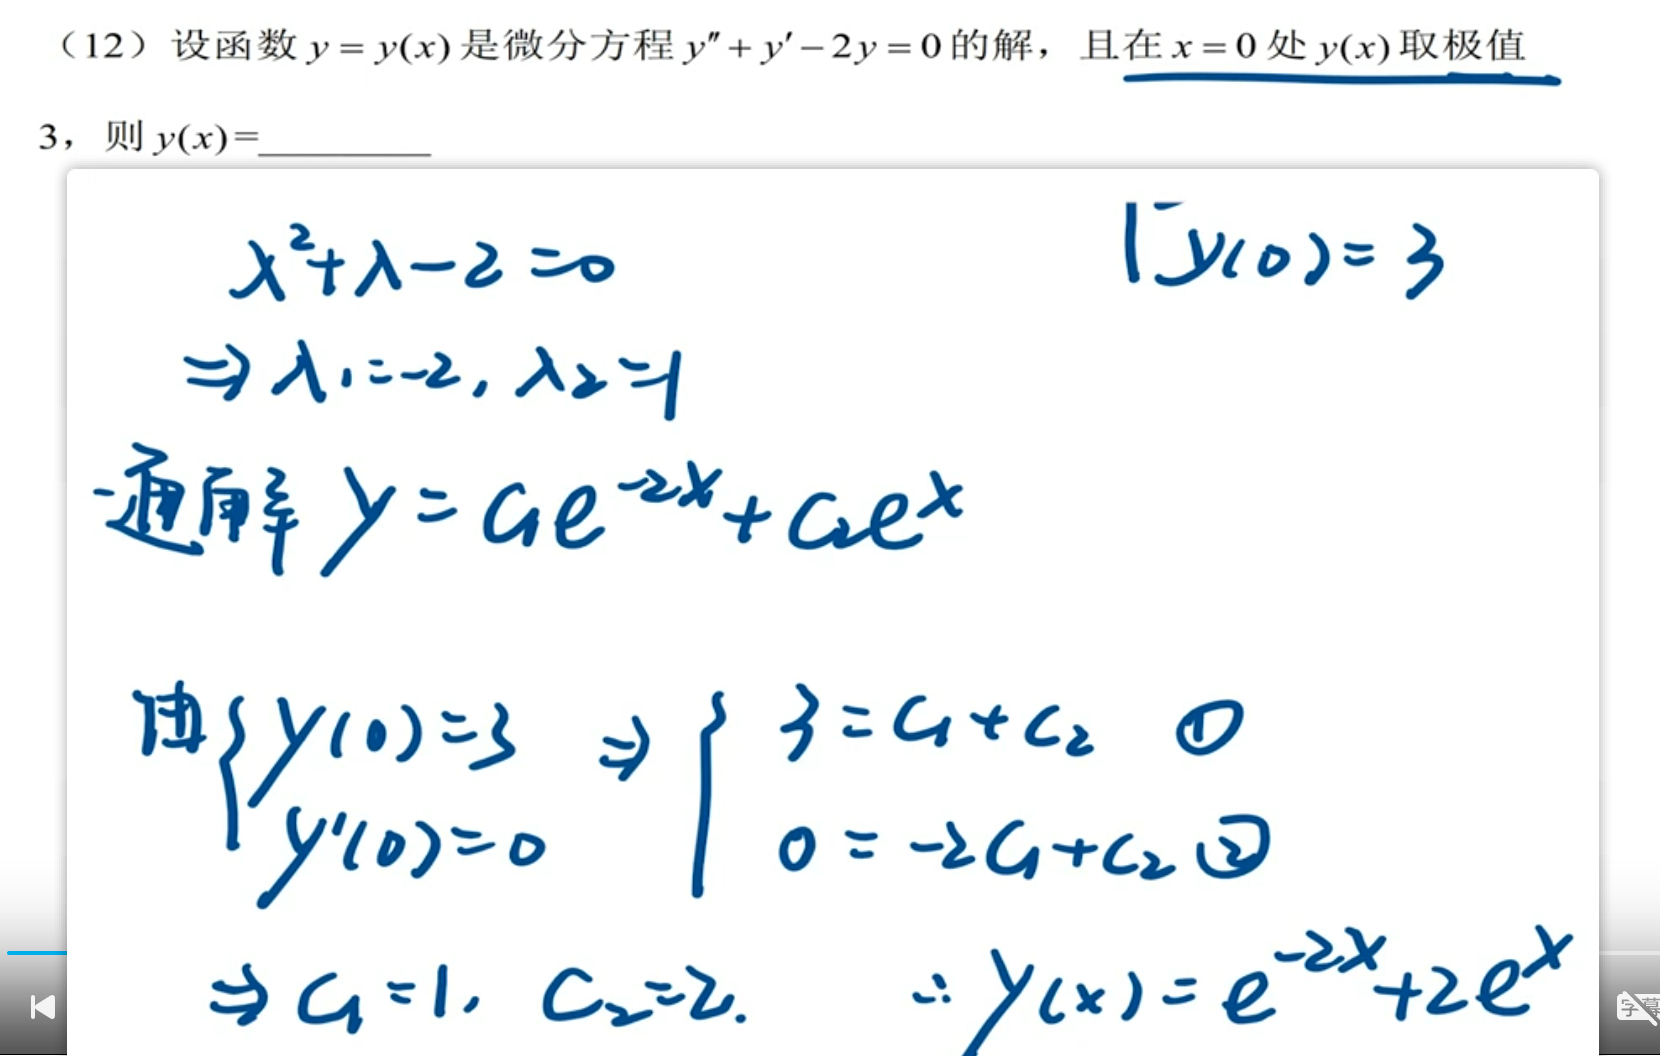 （12）设函数 y = y(x) 是微分方程 y″ + y′ − 2y = 0 的解，且在 x = 0 处 y(x) 取极值
3，则 y(x)=________
y(0)=3
λ²+λ−2=0
⇒ λ₁=−2, λ₂=1
通解 y = C₁e^{−2x}+C₂e^x
由{y(0)=3 ⇒ { 3=C₁+C₂ ①
y′(0)=0 0=−2C₁+C₂ ②
⇒ C₁=1, C₂=2. ∴ y(x)=e^{−2x}+2e^x
字幕